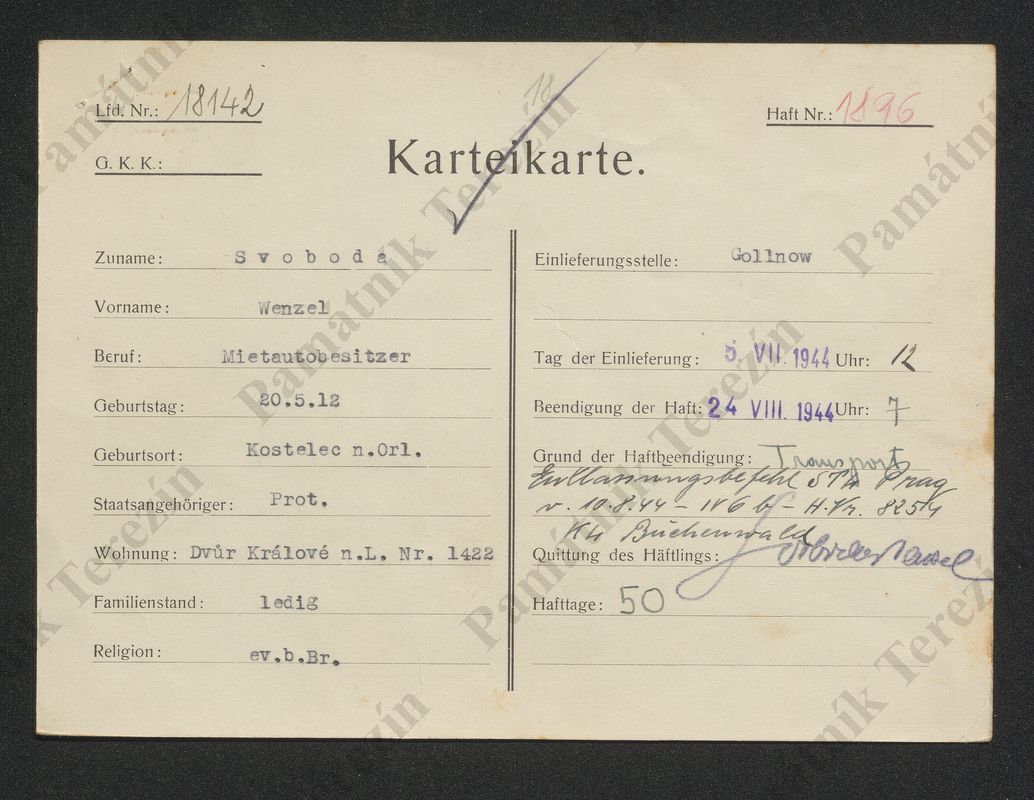 Lfd. Nr.: 18142
18
Haft Nr.: 1896
G. K. K.:
Karteikarte.
Zuname: Svoboda
Vorname: Wenzel
Beruf: Mietautobesitzer
Geburtstag: 20.5.12
Geburtsort: Kostelec n.Orl.
Staatsangehöriger: Prot.
Wohnung: Dvůr Králové n.L. Nr. 1422
Familienstand: ledig
Religion: ev.b.Br.
Einlieferungsstelle: Gollnow
Tag der Einlieferung: 5. VII. 1944 Uhr: 12
Beendigung der Haft: 24 VIII. 1944 Uhr: 7
Grund der Haftbeendigung: Transport
Entlassungsbefehl Prag
v. 10.8.44 - IV 6 b - H.Nr. 8254
Buchenwald
Quittung des Häftlings:
Hafttage: 50
Památník Terezín
Památník Terezín
Památník Terezín
Památník Terezín
Památník Terezín
Památník Terezín